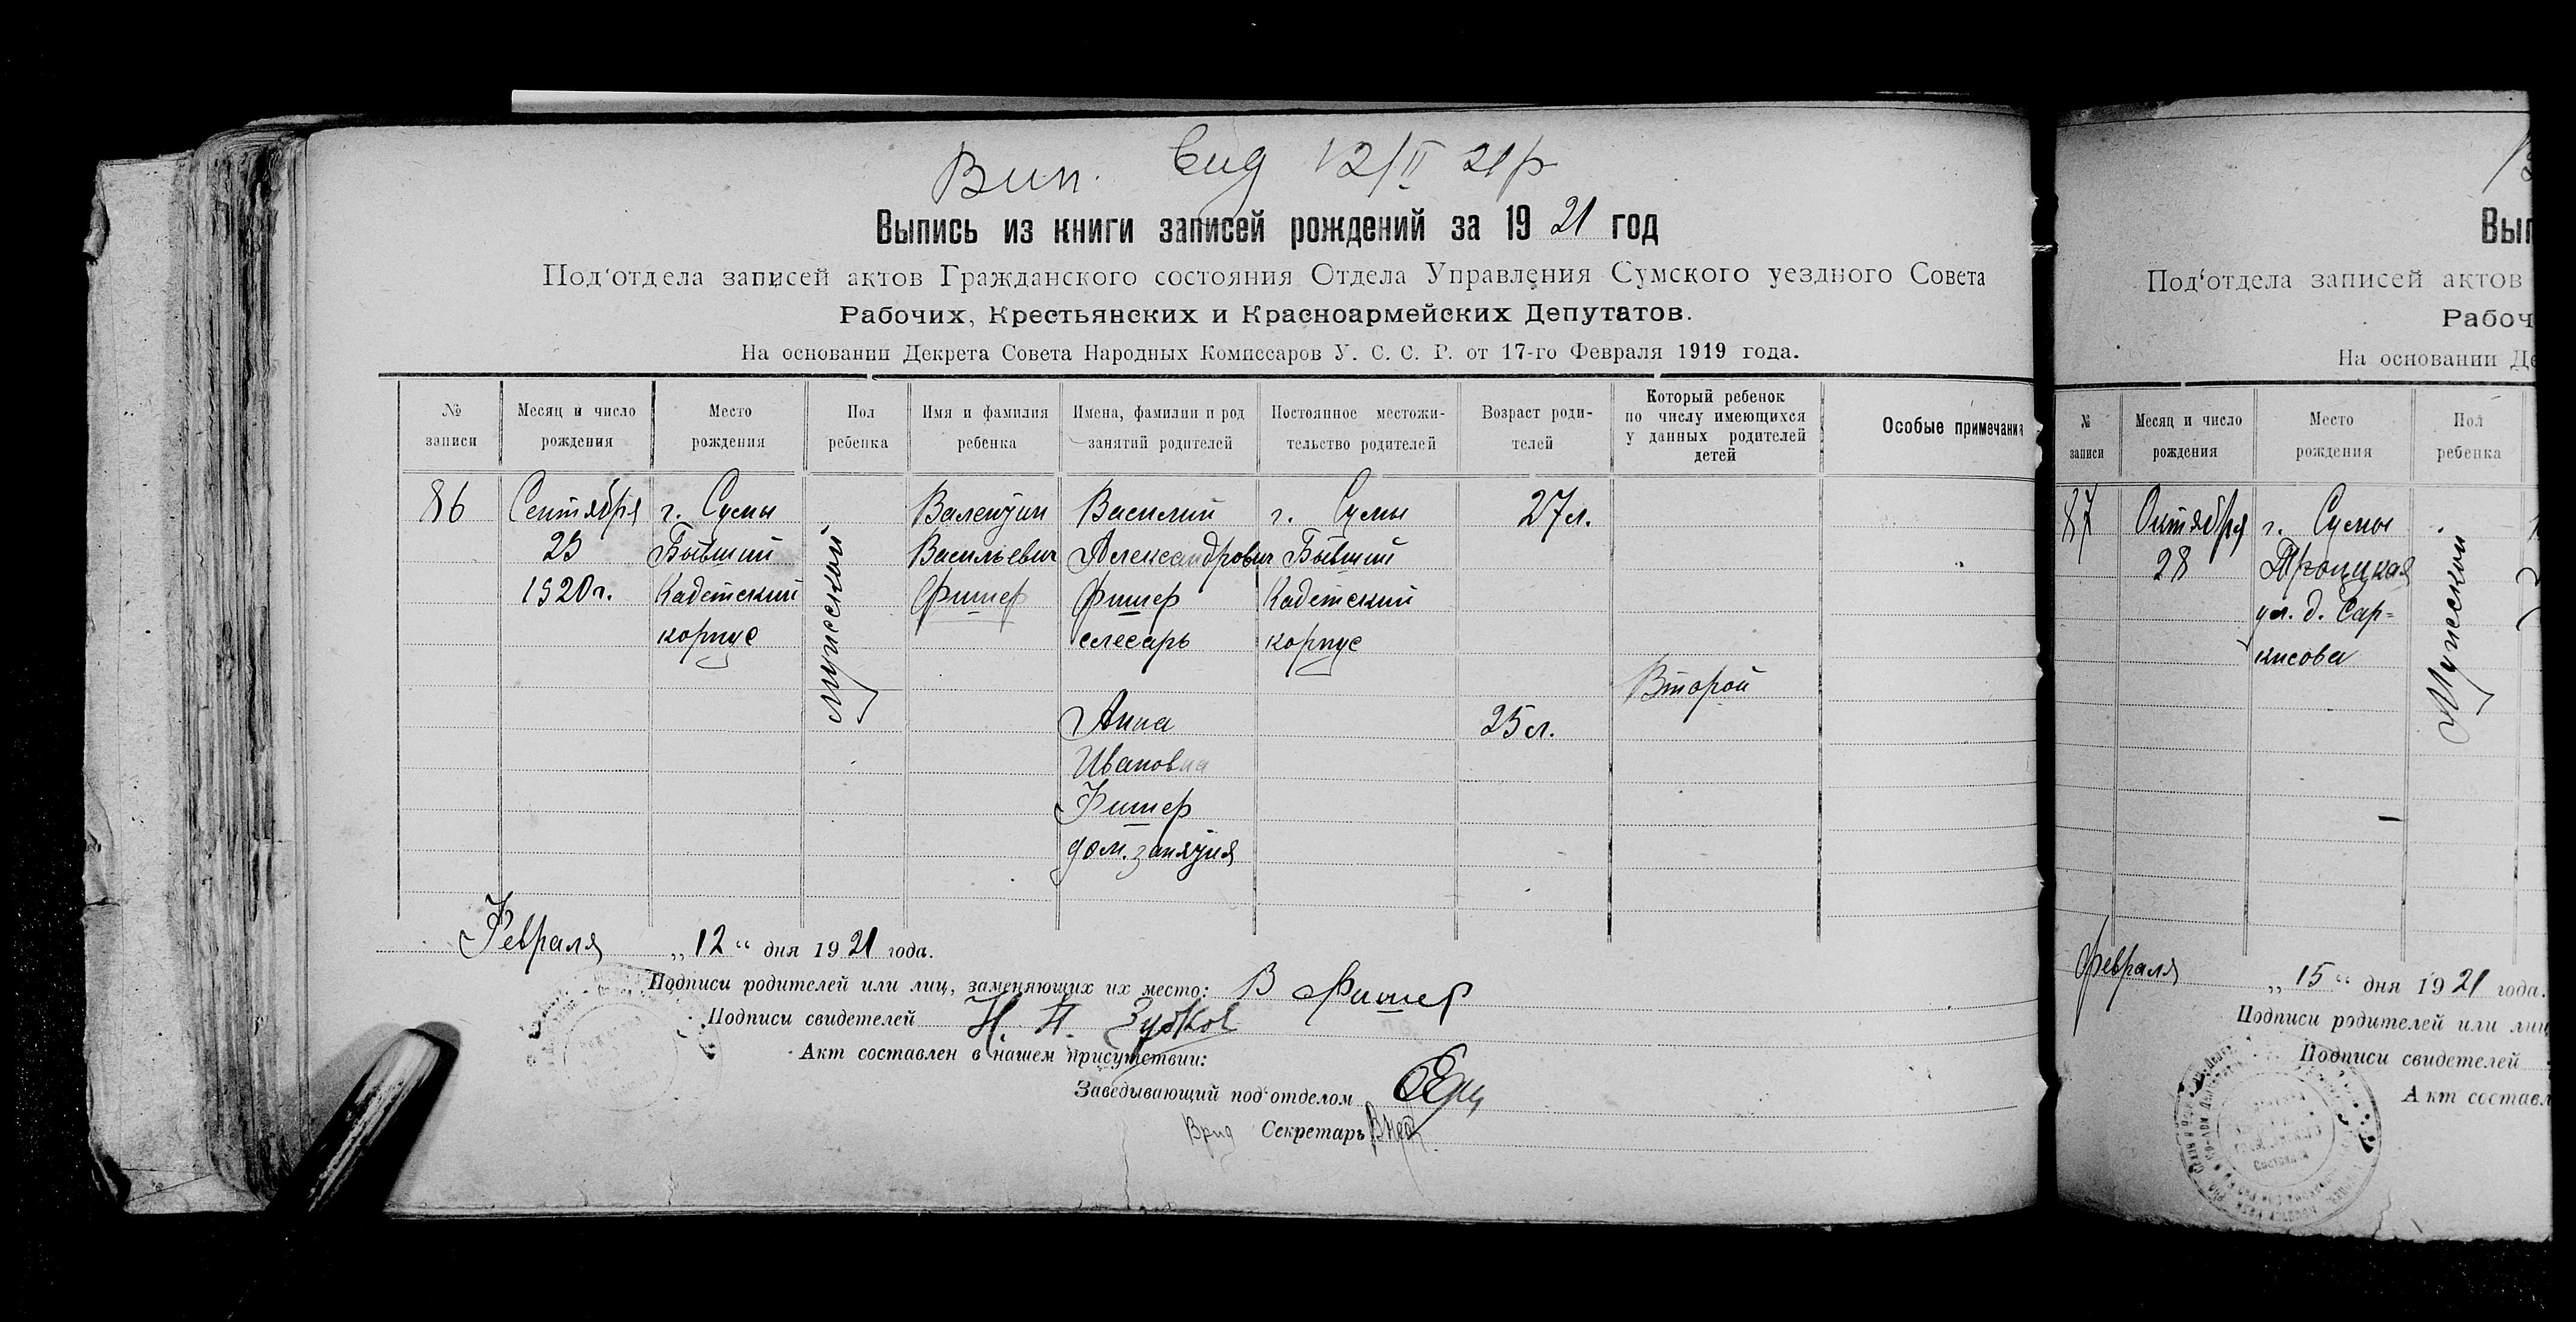 Вип. вид 12/II 21р
Выпись из книги записей рождений за 1921 год
Под'отдела записей актов Гражданского состояния Отдела Управления Сумского уездного Совета
Рабочих, Крестьянских и Красноармейских Депутатов.
На основании Декрета Совета Народных Комиссаров У. С. С. Р. от 17-го Февраля 1919 года.
№ записи
Месяц и число рождения
Место рождения
Пол ребенка
Имя и фамилия ребенка
Имена, фамилии и род занятий родителей
Постоянное местожи-
тельство родителей
Возраст роди-
телей
Который ребенок
по числу имеющихся
у данных родителей
детей
Особые примечания
86
Сентября
23
1920 г.
г. Сумы
Бывший
Кадетский
корпус
мужеский
Валентин
Васильевич
Фишер
Василий
Александрович
Фишер
слесарь
Анна
Ивановна
Фишер
дом. занятия
г. Сумы
Бывший
Кадетский
корпус
27 л.
25 л.
Второй
Февраля „12“ дня 1921 года.
Подписи родителей или лиц, заменяющих их место: В Фишер
Подписи свидетелей Н. П. Зубков
Акт составлен в нашем присутствии:
Заведывающий под'отделом
Врид Секретарь
Вып
Под'отдела записей актов
Рабоч
На основании Де
№ записи
Месяц и число рождения
Место рождения
Пол ребенка
87
Октября
28
г. Сумы
Троицкая
ул. д. Сар-
кисова
Мужеский
Февраля „15“ дня 1921 года.
Подписи родителей или лиц
Подписи свидетелей
Акт составл